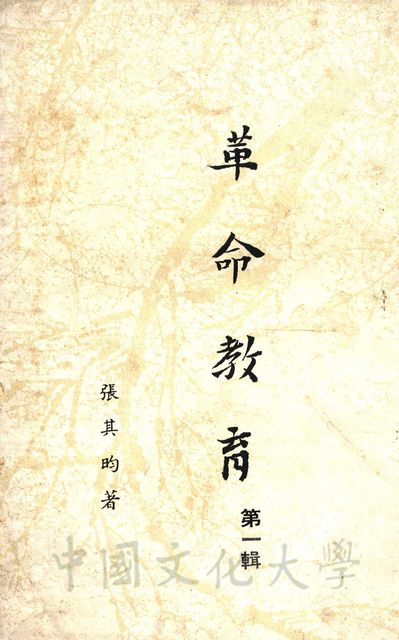 革命教育
第一輯
張其昀著
中國文化大學